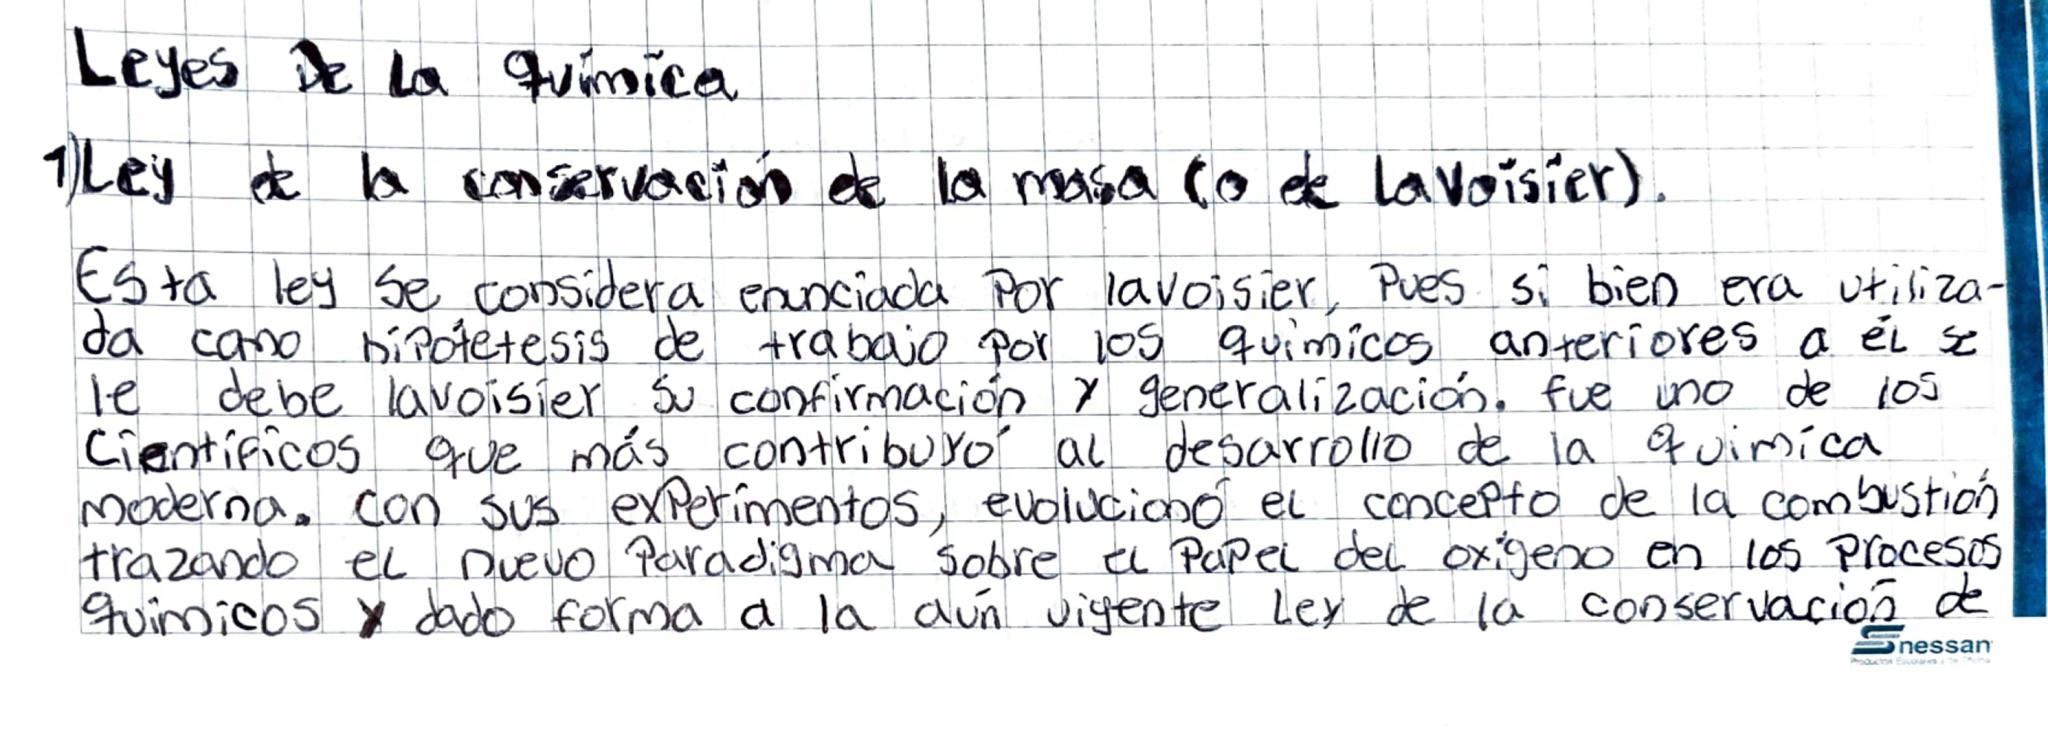 Leyes De La química
1) Ley de la conservación de la masa (o de Lavoisier).
Esta ley se considera enunciada Por lavoisier, Pues si bien era utiliza-
da como hipótetesis de trabajo por los químicos anteriores a él se
le debe lavoisier su confirmación y generalización. fue uno de los
Científicos que más contribuyó al desarrollo de la química
moderna. con sus experimentos, evolucionó el concepto de la combustión
trazando el nuevo Paradigma sobre el Papel del oxígeno en los Procesos
químicos y dado forma a la aún vigente Ley de la conservación de
Snessan
Productos Escolares y De Oficina